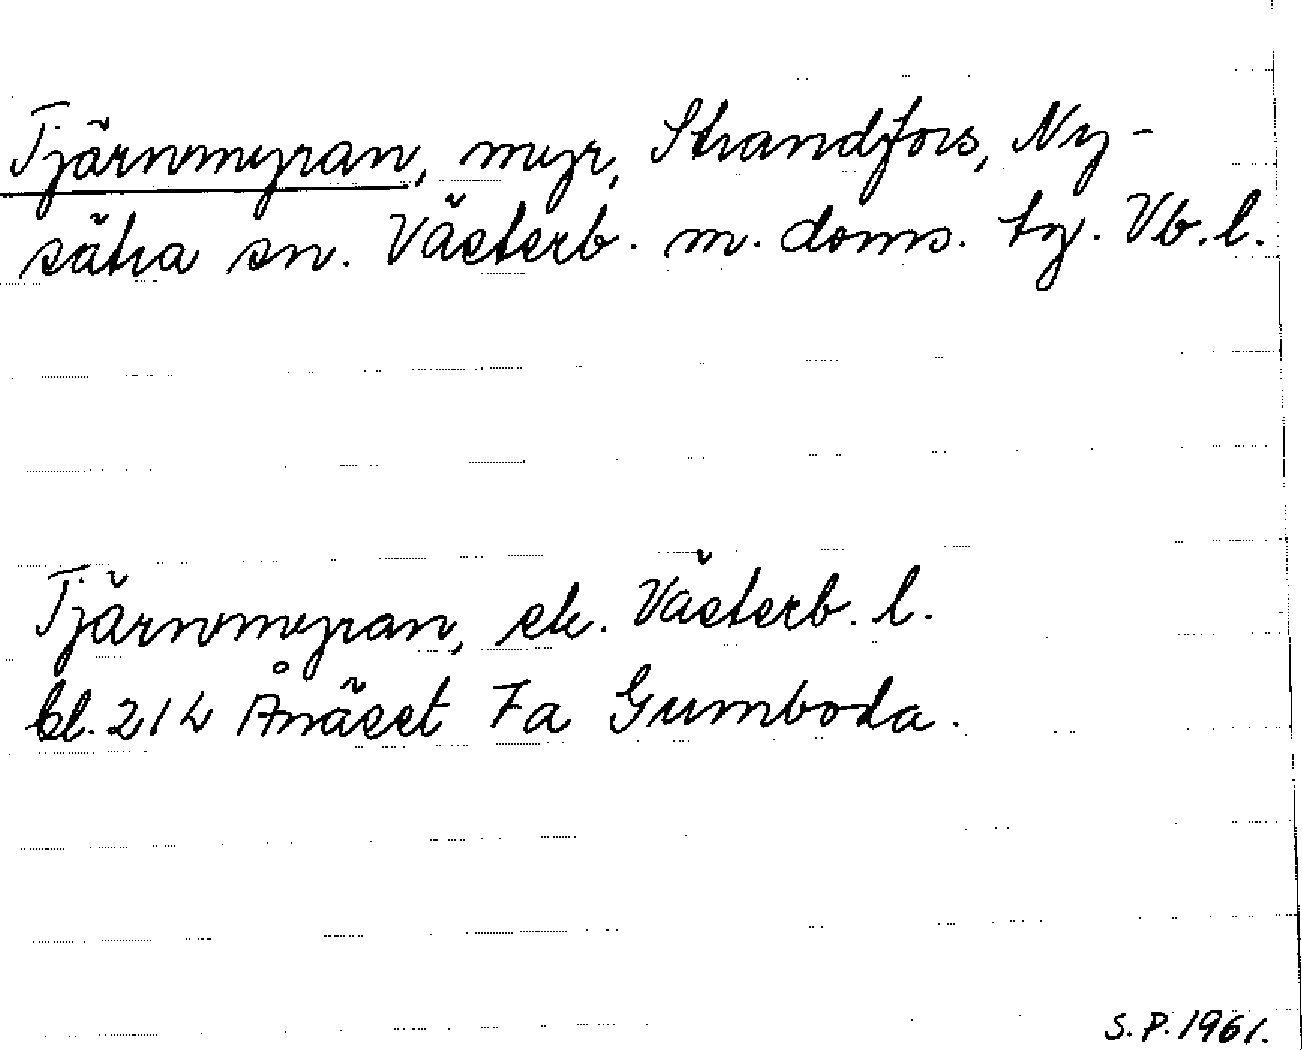 Tjärnmyran, myr, Strandfors, Ny-
sätra sn. Västerb. m. doms. tg. Vb.l.
Tjärnmyran, ek. Västerb. l.
bl. 21 L Ånäset 7a Gumboda.
S.P. 1961.